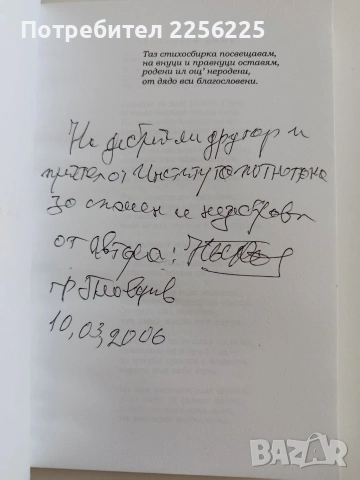 Потребител 2256225
Таз стихосбирка посвещавам,
на внуци и правнуци оставям,
родени ил още' неродени,
от дядо вси благословени.
На добрия ми другар и
приятел от Института
За спомен и
от Автора:
гр. Пловдив
10,03,2006
BAZAR